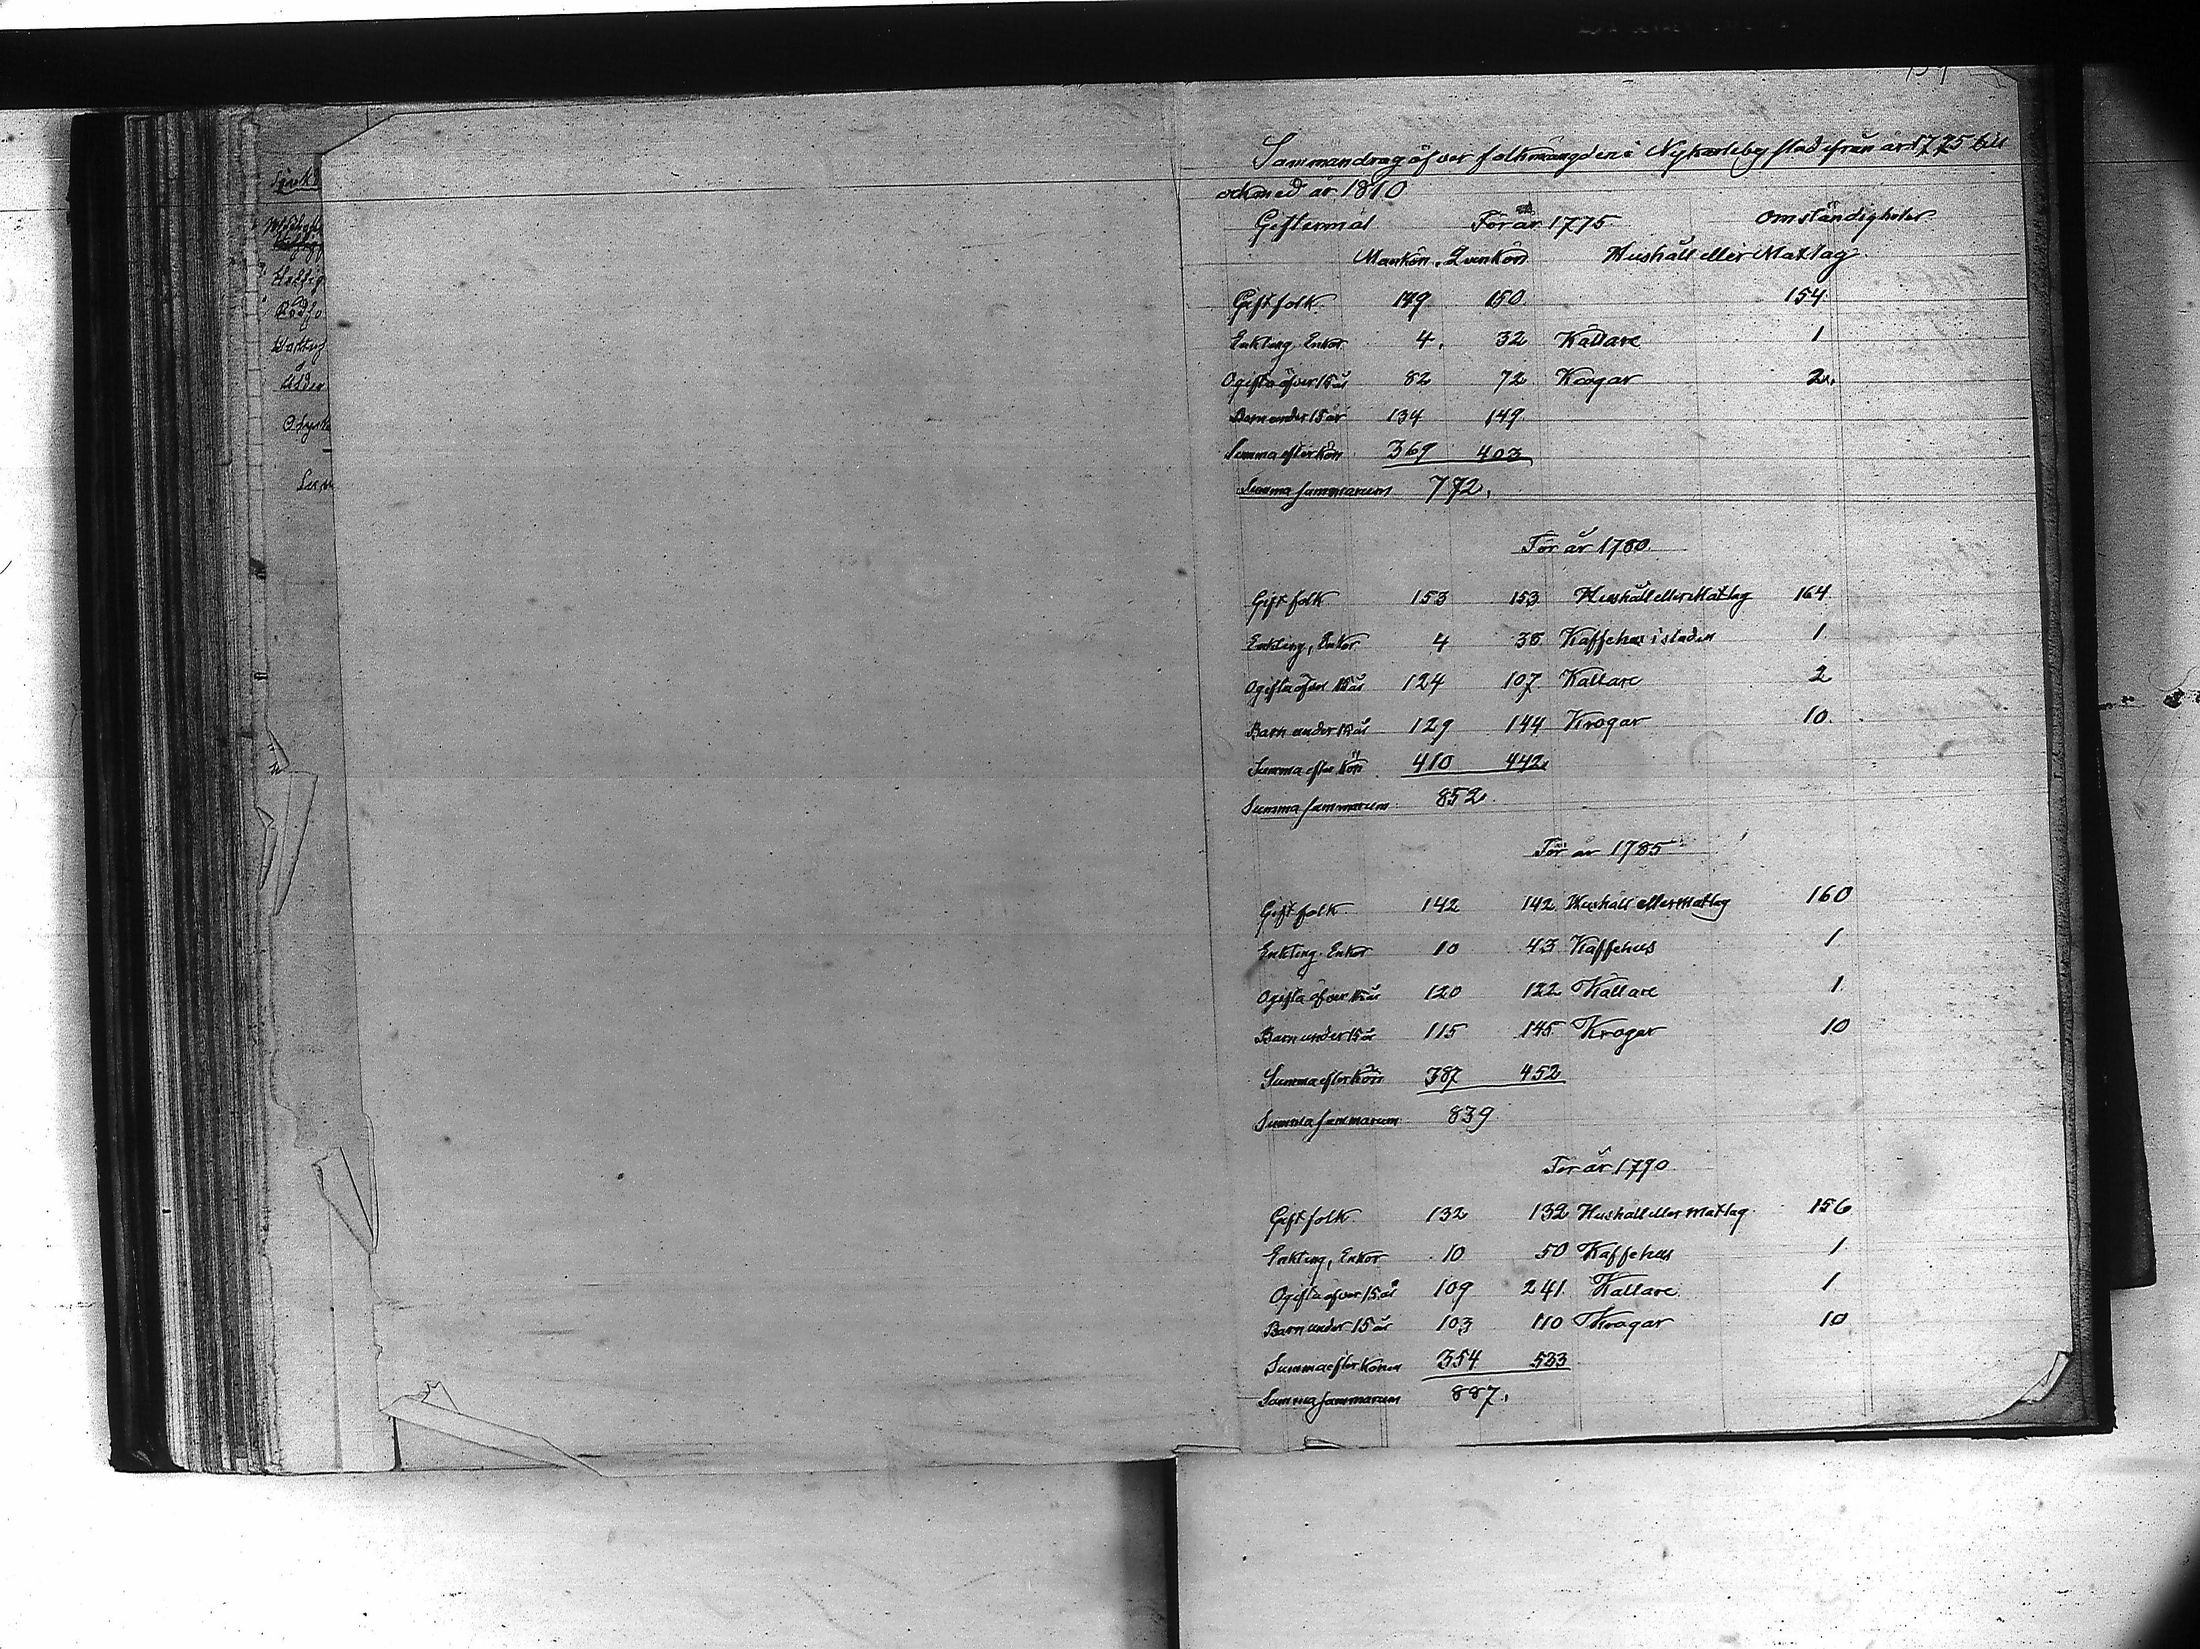 Sammandrag öfver folkmängden i Nykarleby stad ifrån år 1775 till
och med år 1810
Giftermål För år 1775 Omständigheter
Mankön. Qvinkön Hushåll eller Matlag.
Gift folk 149 150 154
Enkling. Enkor 4. 32 Källare 1
Ogifta öfver 15 år 82 72 Krogar 2.
Barn under 15 år 134 149
Summa efter kön 369 403
Summa summarum 772.
För år 1780.
Gift folk 153 153 Hushåll eller Matlag 164
Enkling, Enkor 4 38 Kaffehus i staden 1
Ogifta öfver 15 år 124 107 Källare 2
Barn under 15 år 129 144 Krogar 10.
Summa efter kön 410 442.
Summa summarum 852.
För år 1785
Gift folk 142 142 Hushåll eller matlag 160
Enkling. Enkor 10 43 Kaffehus 1
Ogifta öfver 15 år 120 122 Källare 1.
Barn under 15 år 115 145 Krogar 10
Summa efter kön 387 452
Summa summarum 839
För år 1790.
Gift folk 132 132 Hushåll eller matlag. 156
Enkling, Enkor 10 50 Kaffehus 1
Ogifta öfver 15 år 109 241. Källare. 1
Barn under 15 år 103 110 Krogar 10
Summa efter könen 354 533
Summa summarum 887.